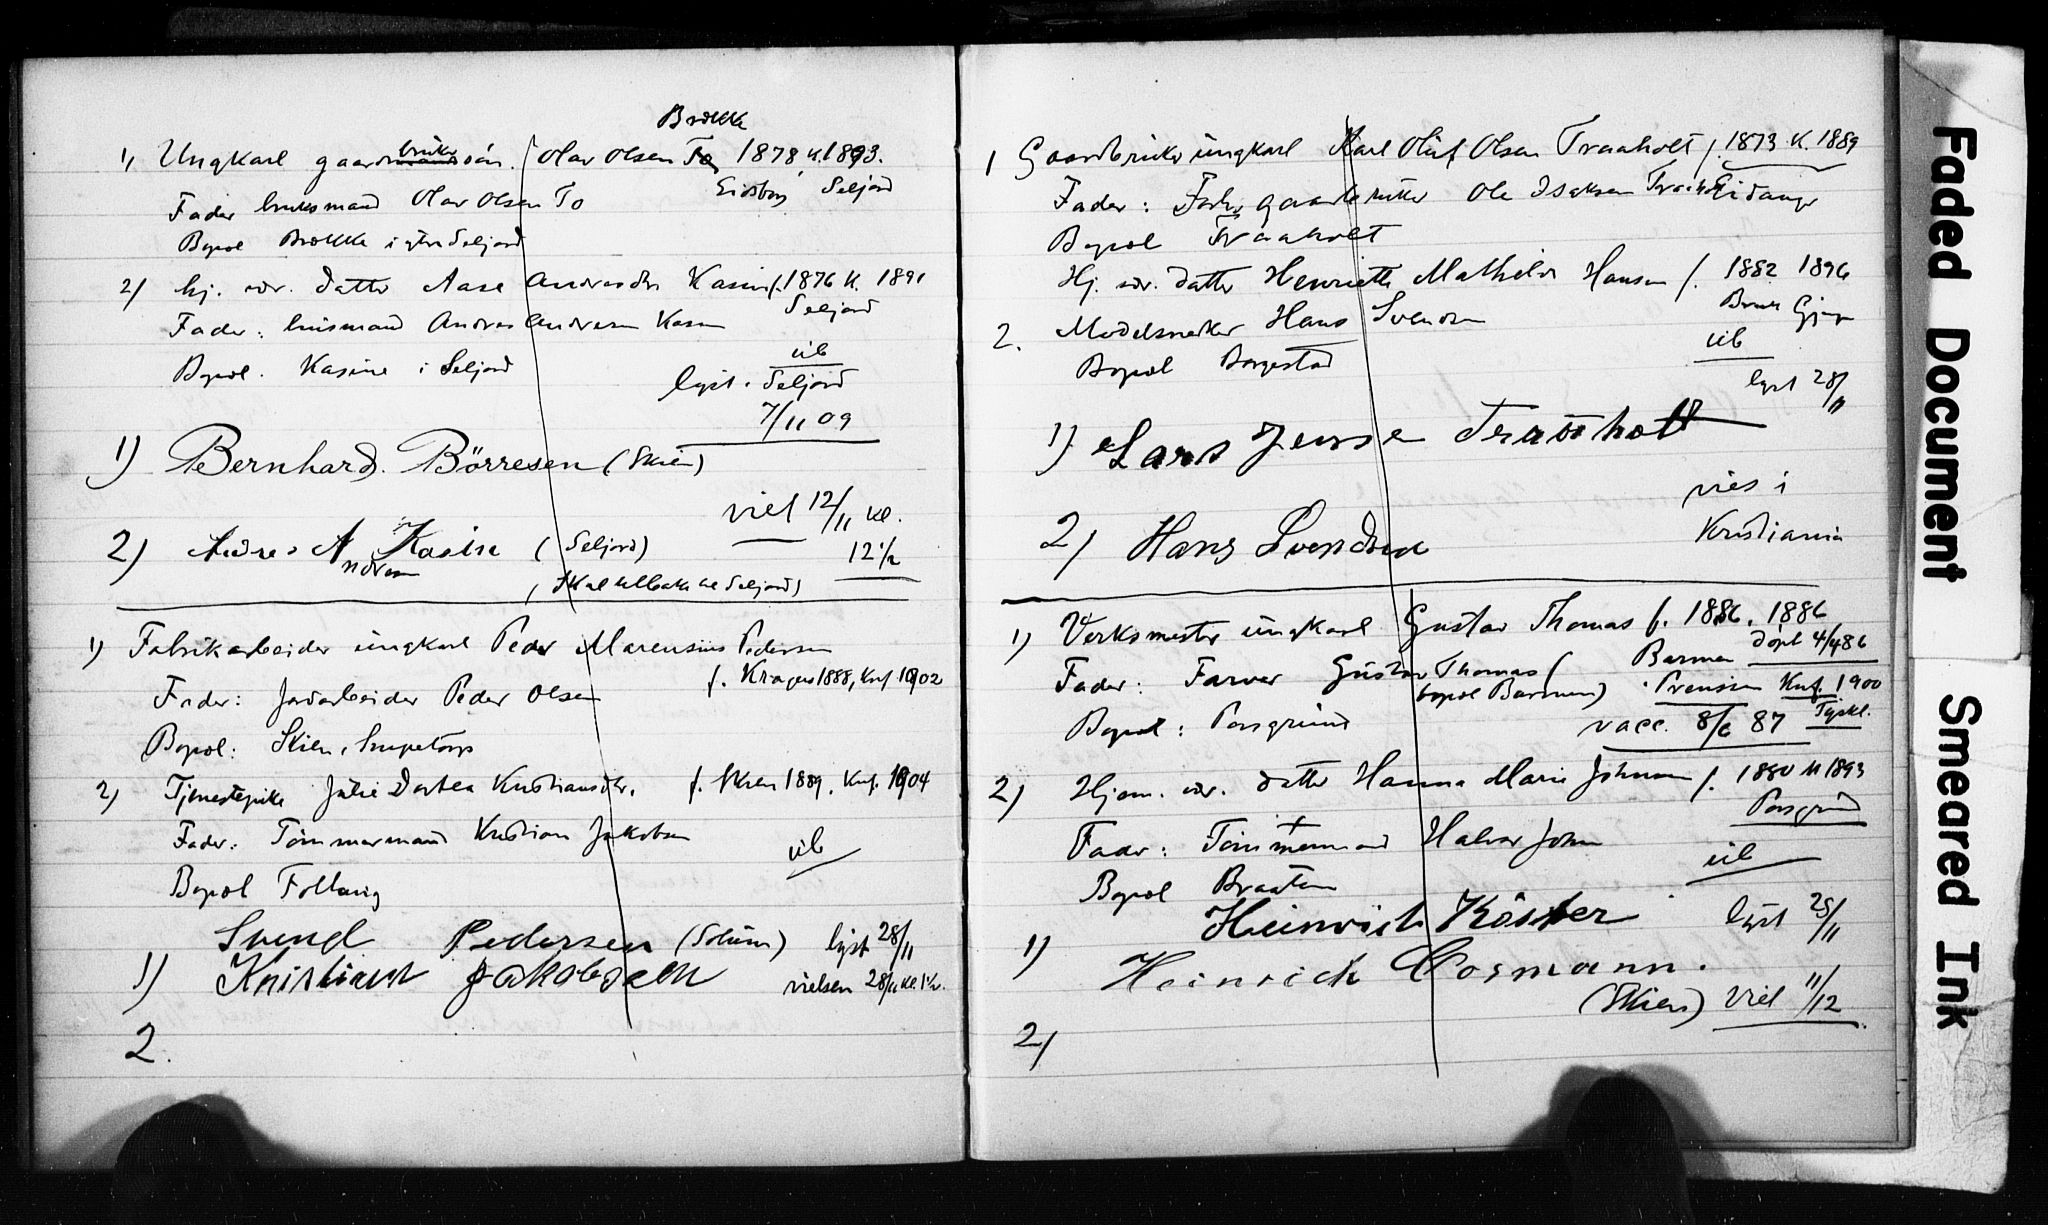 Brække
1) Ungkarl gaardbruker søn. Olav Olsen To 1878 K. 1893.
Eidsborg Seljord
Fader bruksmand Olav Olsen To
Bopæl Brække i ytre Seljord
2) hj. vær. datter Aase Andresdtr Kasin f. 1876 K. 1891
Seljord
Fader: husmand Andres Andresen Kasin
Bopæl. Kasine i Seljord
üb
lyst. Seljord
7/11 09
1) Bernhard. Börresen (Skien)
viet 12/11 kl.
12 1/2
2) Andres Andresen Kasin (Seljord)
(Skal tilbake til Seljord)
1) Fabrikarbeider ungkarl Peder Marensius Pedersen
f. Kragerø 1888, Knf. 1902
Fader: Jordarbeider Peder Olsen
Bopæl: Skien, Snipetorp
2) Tjenestepike Julie Dortea Kristiansdtr. f. Skien 1889. Knf. 1904
Fader: Tömmermand Kristian Jakobsen
üb
Bopæl Follaug
Svend Pedersen (Solum) lyst 28/11
1) Kristian Jakobsen vielsen 28/11 kl. 1 1/2.
2.
1 Gaardbruker ungkarl Karl Oluf Olsen Traaholt f. 1873 K. 1889
Fader: Forh. gaardbruker Ole Isaksen Traaholt Eidanger
Bopæl Traaholt
Hj. vær. datter Henriette Mathilde Hansen f. 1882 1896
2. Modelsnedker Hans Svendsen
üb
Bopæl Borgestad
lyst 28/11
1) Lars Jensen Traaholt
vies i
Kristiania
2) Hans Svendsen
1) Verksmester ungkarl Gustav Thomas f. 1886, 1886
Barmen döpt 4/4 86
Fader: Farver Gustav Thomas (bopæl Barmen) Preussen Knf. 1900
Tyskl.
Bopæl: Porsgrund
vacc. 8/6 87
2) Hjem. vær. datter Hanna Marie Johnsen f. 1880 K 1893
Porsgrund
Fader: Tömmermand + Halvor John
üb
Bopæl Braaten
Heinrich Köster lyst 28/11
1) Heinrich Cosmann.
(Skien) Viet 11/12
2)
Faded Document
Smeared Ink